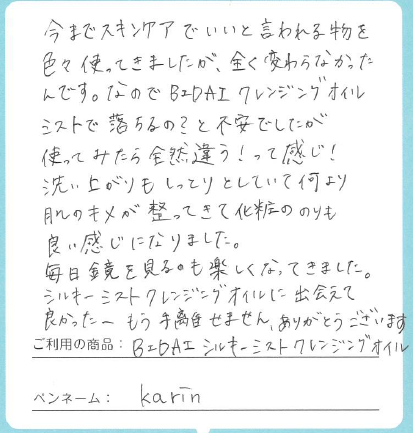 今までスキンケアでいいと言われる物を
色々使ってきましたが、全く変わらなかった
んです。なのでBIDAIクレンジングオイル
ミストで落ちるの？と不安でしたが
使ってみたら全然違う！って感じ！
洗い上がりもしっとりとしていて何より
肌のキメが整ってきて化粧ののりも
良い感じになりました。
毎日鏡を見るのも楽しくなってきました。
シルキーミストクレンジングオイルに出会えて
良かったー もう手離せません、ありがとうございます
ご利用の商品：BIDAIシルキーミストクレンジングオイル
ペンネーム：karin